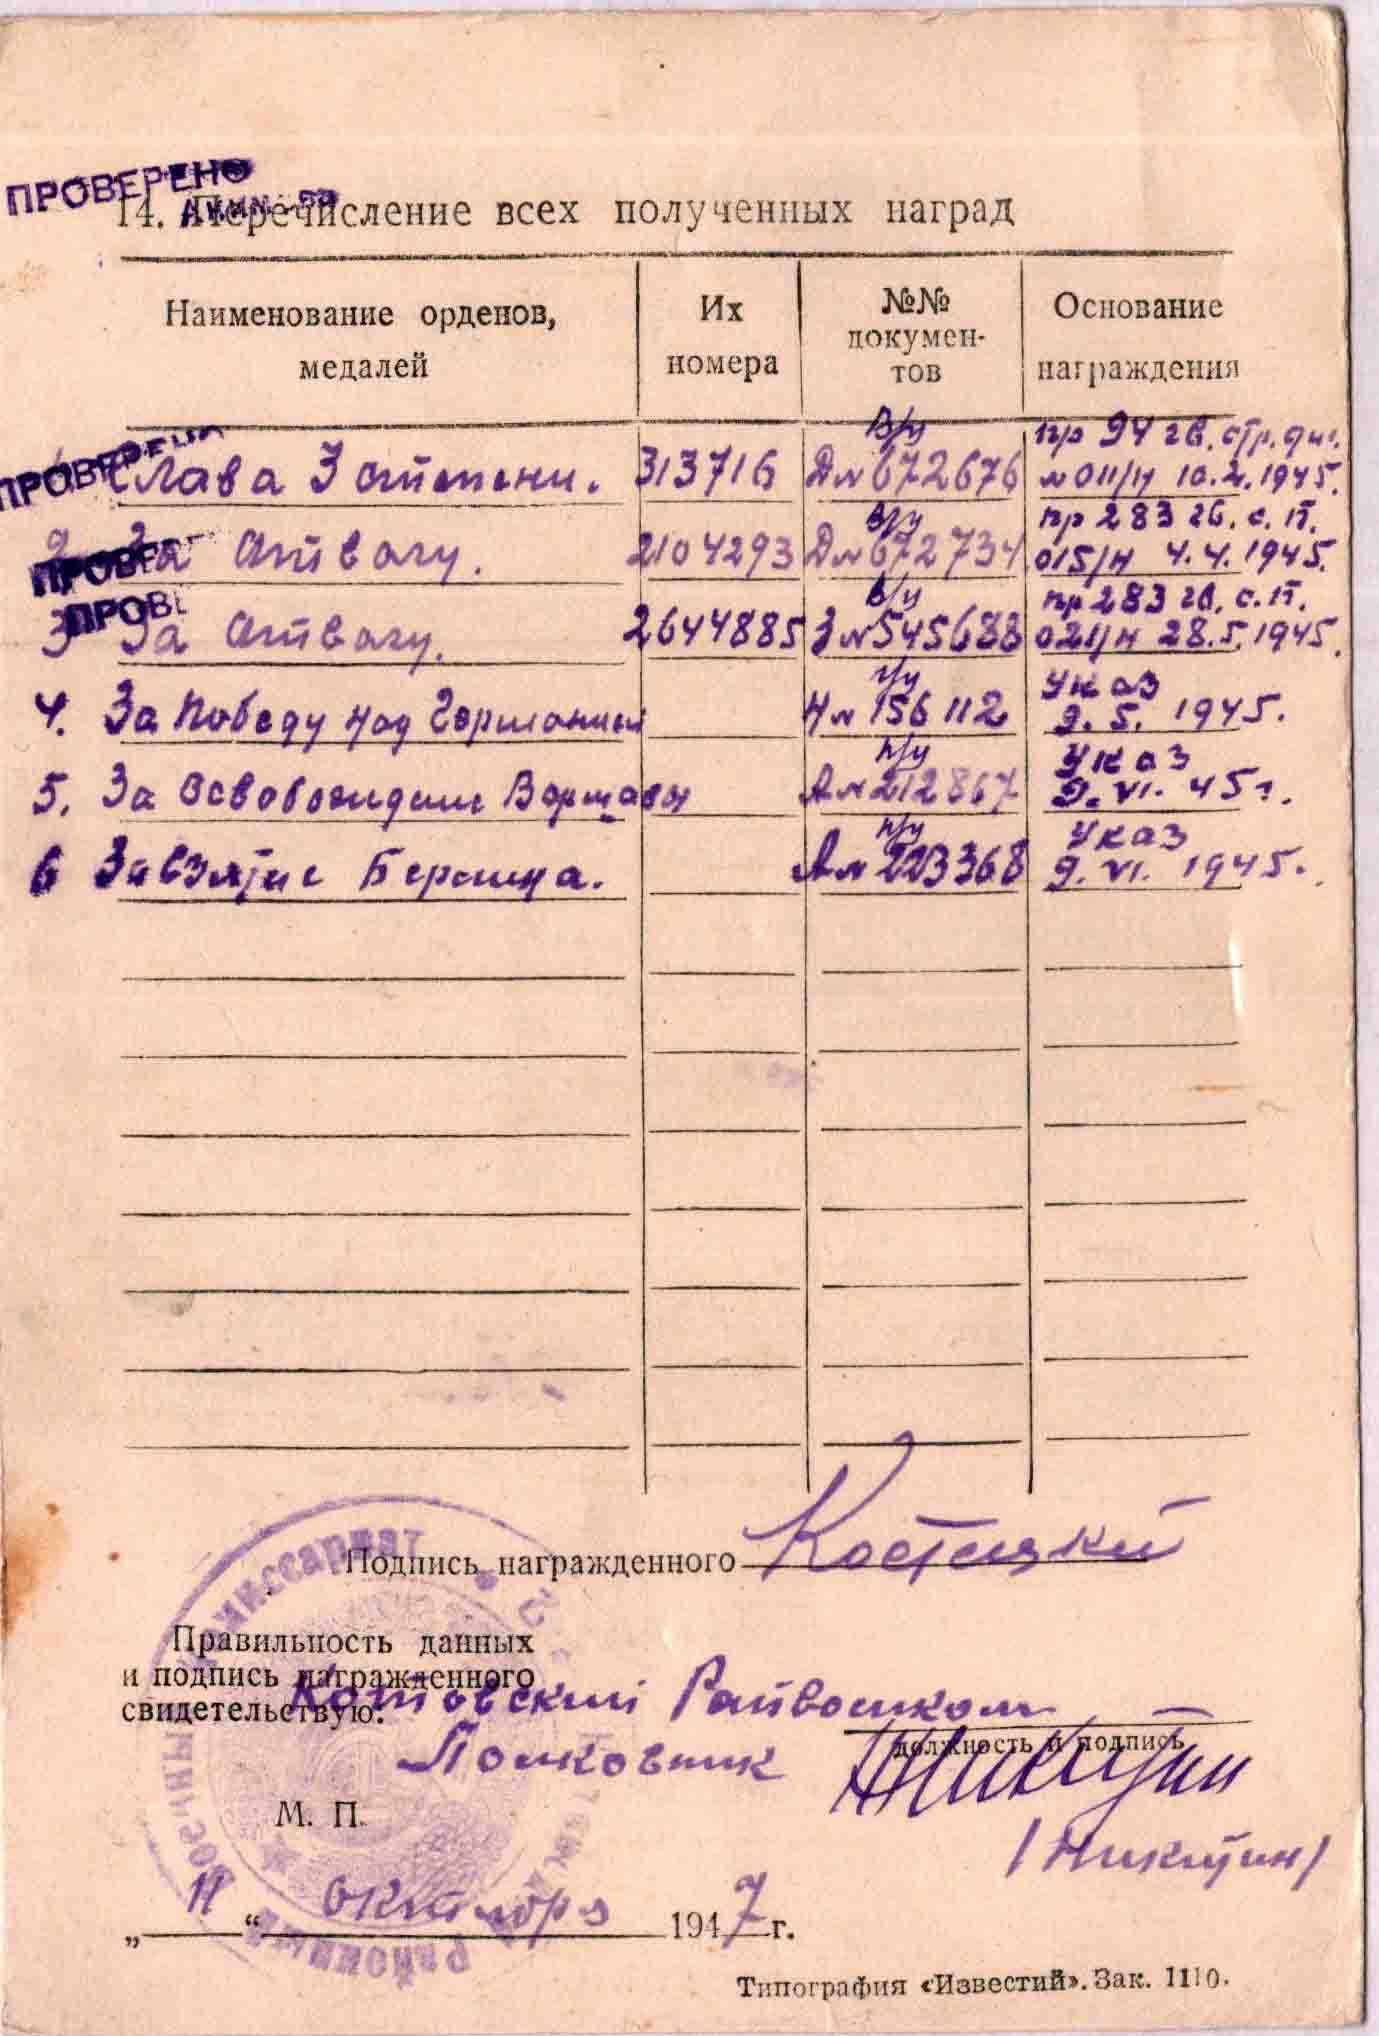 ПРОВЕРЕНО
14. Перечисление всех полученных наград
Наименование орденов, медалей
Их номера
№№ докумен-тов
Основание награждения
ПРОВЕРЕНО
Слава 3 степени. 313716 в/у Д № 672676 пр 94 гв. стр. див. № 011/н 10.2.1945.
ПРОВЕ
2 За Отвагу. 2104293 в/у Д № 672734 пр 283 гв. с. п. 015/н 4.4.1945.
ПРОВЕ
3 За Отвагу. 2644885 в/у З № 545688 пр 283 гв. с. п. 021/н 28.5.1945.
4. За Победу над Германией п/у Н № 156112 Указ 9.5.1945.
5. За Освобождение Варшавы п/у А № 212867 Указ 9.VI.45г.
6 За взятие Берлина. п/у А № 223368 Указ 9.VI.1945.
Подпись награжденного Костецкий
Правильность данных
и подпись награжденного
свидетельствую: Котовский Райвоенком
должность и подпись
Полковник Никитин
/Никитин/
М. П.
„11“ октября 1947 г.
Типография «Известий». Зак. 1110.